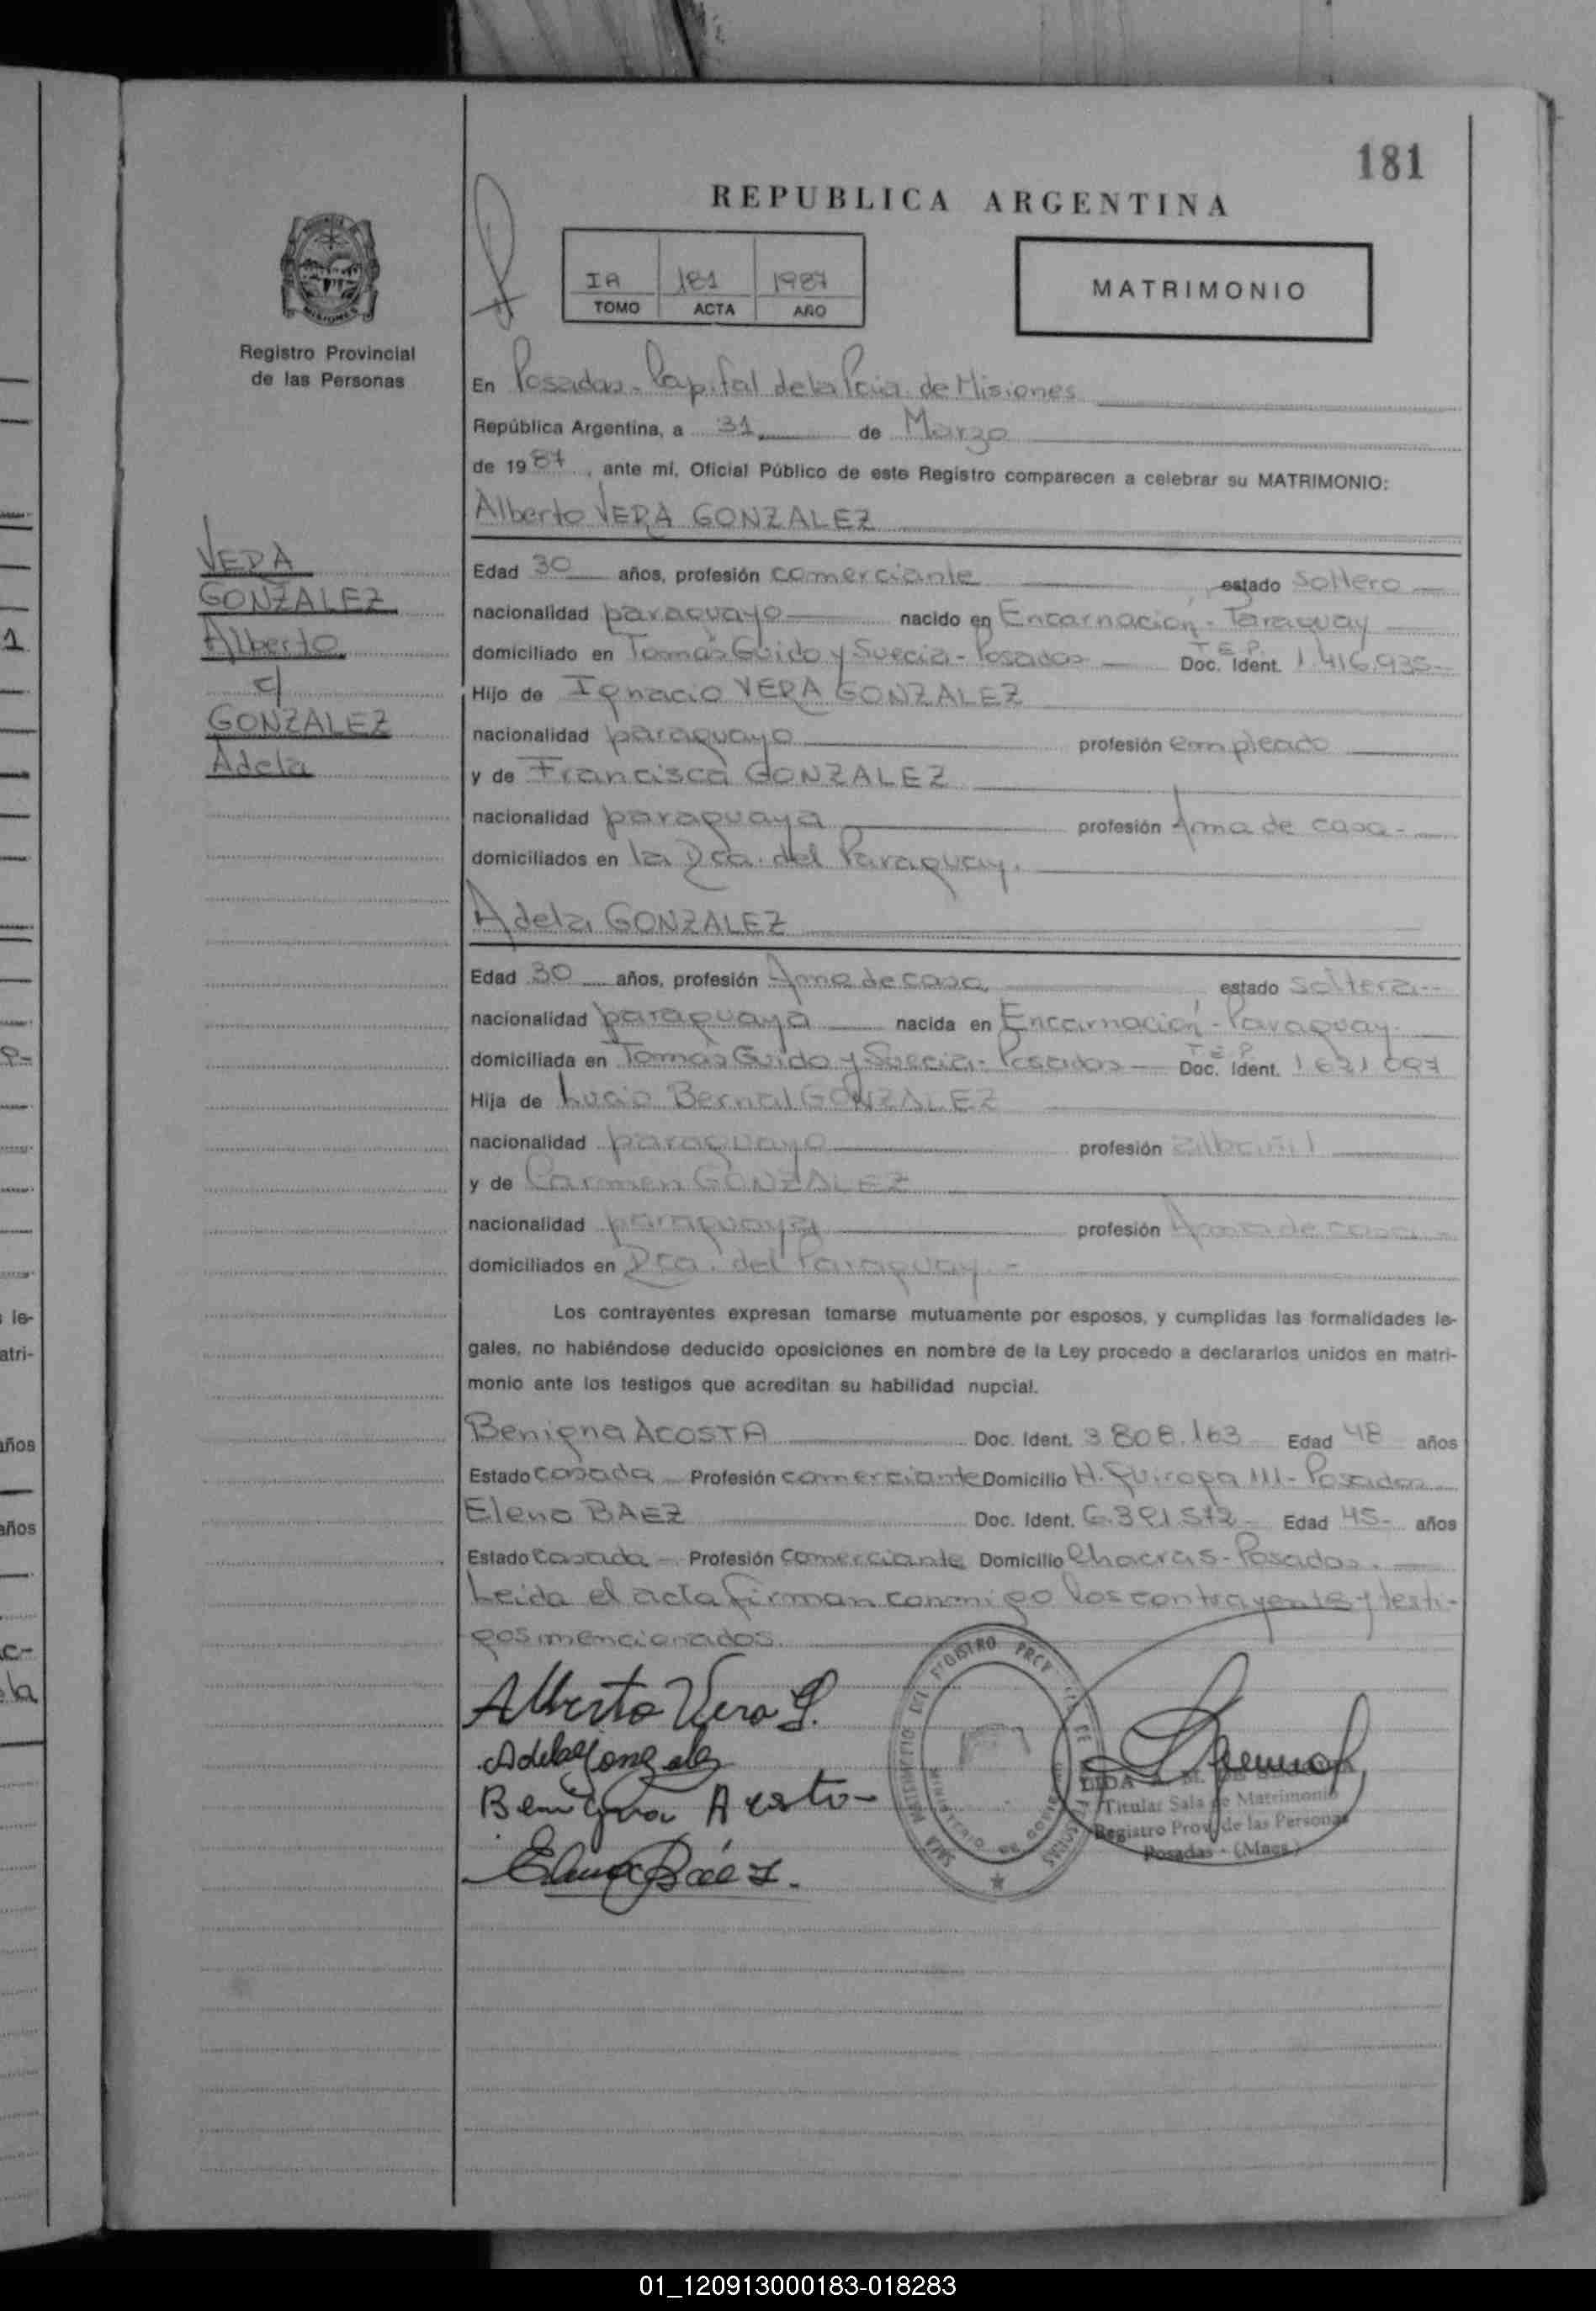 181
REPUBLICA ARGENTINA
IA 181 1987
TOMO ACTA AÑO
MATRIMONIO
Registro Provincial
de las Personas
En Posadas - Capital de la Pcia. de Misiones
República Argentina, a 31 de Marzo
de 1987, ante mí, Oficial Público de este Registro comparecen a celebrar su MATRIMONIO:
Alberto VERA GONZALEZ
VERA
GONZALEZ
Alberto
c/
GONZALEZ
Adela
Edad 30 años, profesión comerciante estado soltero
nacionalidad paraguayo nacido en Encarnación - Paraguay
domiciliado en Tomás Guido y Suecia - Posadas T.E.P. Doc. Ident. 1.416.935
Hijo de Ignacio VERA GONZALEZ
nacionalidad paraguayo profesión empleado
y de Francisca GONZALEZ
nacionalidad paraguaya profesión Ama de casa -
domiciliados en la Rca. del Paraguay.
Adela GONZALEZ
Edad 30 años, profesión Ama de casa estado soltera
nacionalidad paraguaya nacida en Encarnación - Paraguay
domiciliada en Tomás Guido y Suecia - Posadas T.E.P. Doc. Ident. 1 621 097
Hija de Lucio Bernal GONZALEZ
nacionalidad paraguayo profesión albañil
y de Carmen GONZALEZ
nacionalidad paraguaya profesión Ama de casa -
domiciliados en Rca. del Paraguay -
Los contrayentes expresan tomarse mutuamente por esposos, y cumplidas las formalidades le-
gales, no habiéndose deducido oposiciones en nombre de la Ley procedo a declararlos unidos en matri-
monio ante los testigos que acreditan su habilidad nupcial.
Benigna ACOSTA Doc. Ident. 3.808.163 Edad 48 años
Estado casada Profesión comerciante Domicilio H. Quiroga 111 - Posadas
Elena BAEZ Doc. Ident. 6.391.572 Edad 45 años
Estado casada Profesión comerciante Domicilio Chacras - Posadas.
Leida el acta firman conmigo los contrayentes y testi-
gos mencionados.
Alberto Vera G.
Adela Gonzalez
Benigna Acosta
Elena Báez.
Titular Sala de Matrimonio
Registro Prov. de las Personas
Posadas - (Mnes.)
1
le-
atri-
años
años
c-
la
01_120913000183-018283